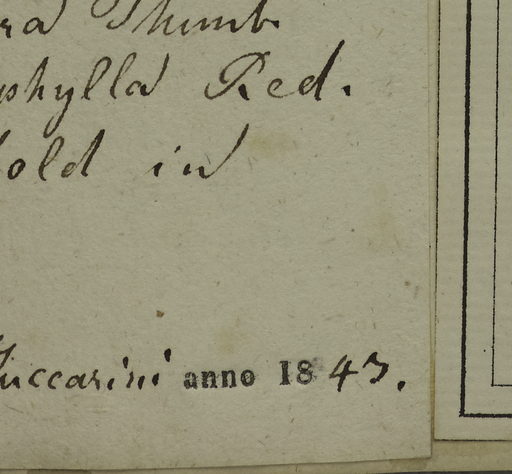 ra Thunb
phylla Red.
bold in
Zuccarini anno 1843.